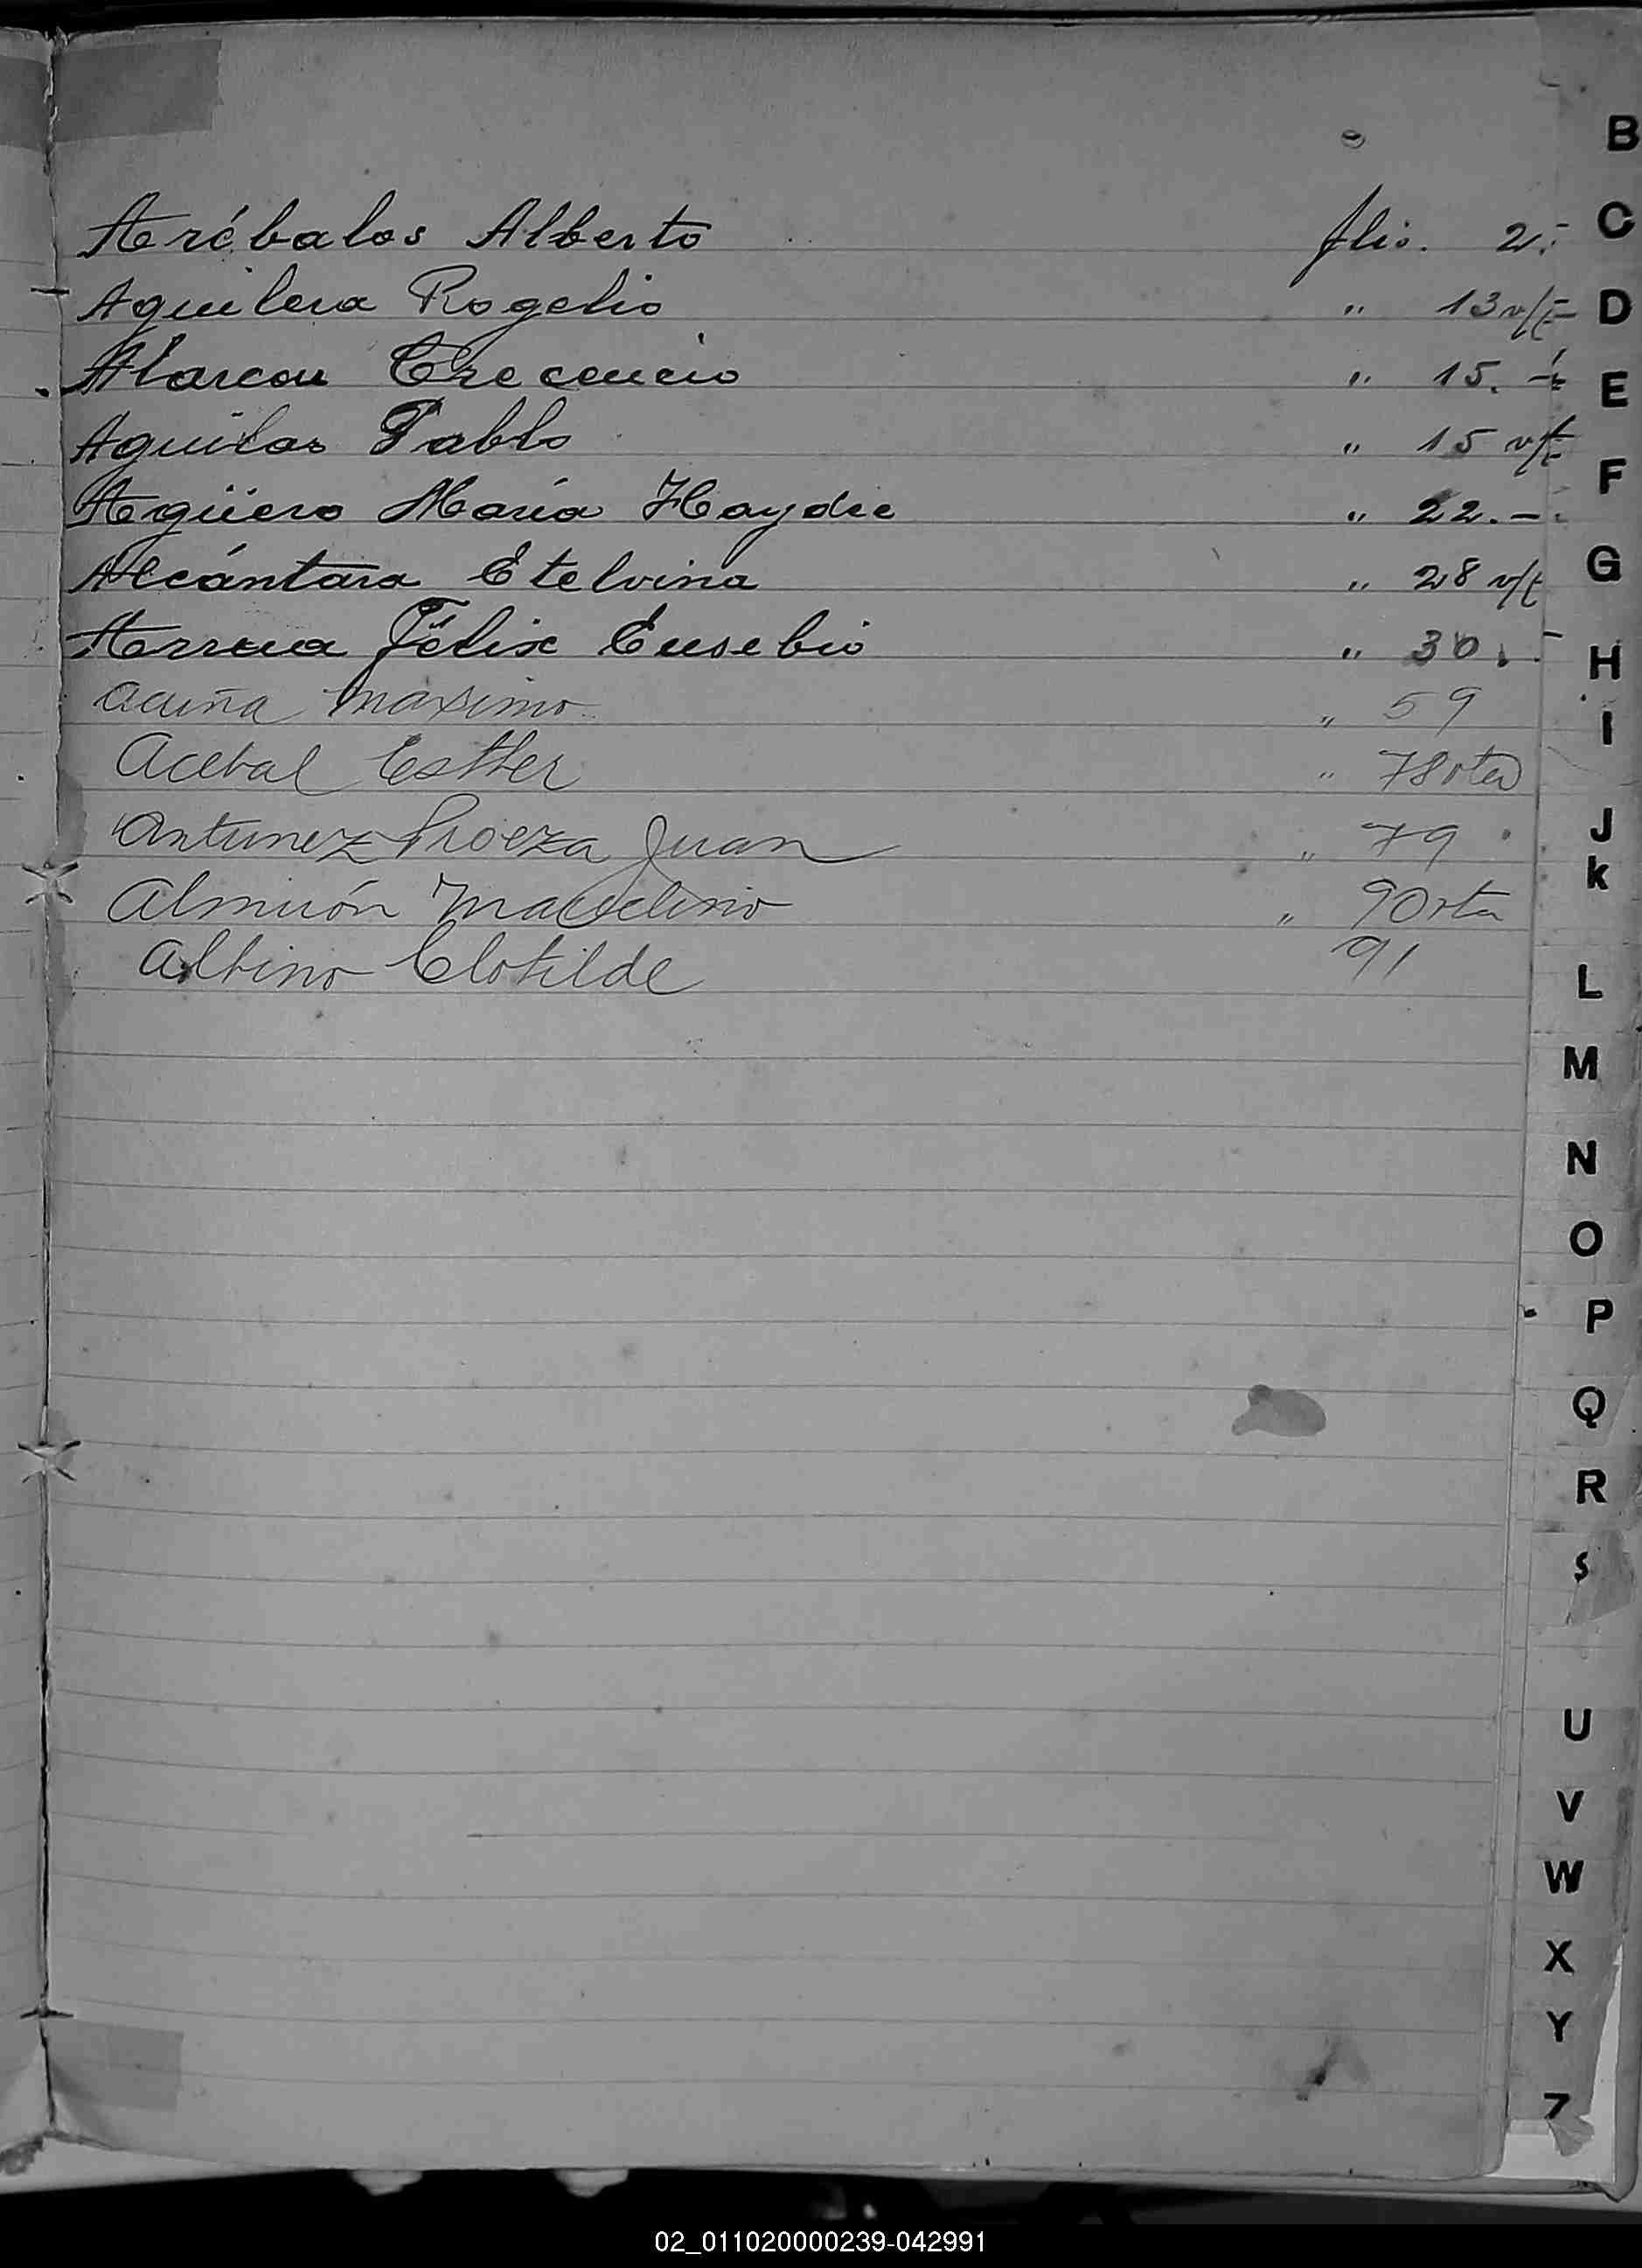 Arébalos Alberto flio. 2.-
Aguilera Rogelio " 13 v/t
Alarcon Crecencio " 15.-
Aguilar Pablo " 15 v/t
Agüero María Haydée " 22.-
Alcántara Etelvina " 28 v/t
Félix Eusebio " 30.-
Acuña Máximo " 59
Acebal Esther " 78 vta
Antunez Proeza Juan " 79
Almirón Marcelino " 90 vta
Albino Clotilde 91
B
C
D
E
F
G
H
I
J
k
L
M
N
O
P
Q
R
S
U
V
W
X
Y
Z
02_011020000239-042991